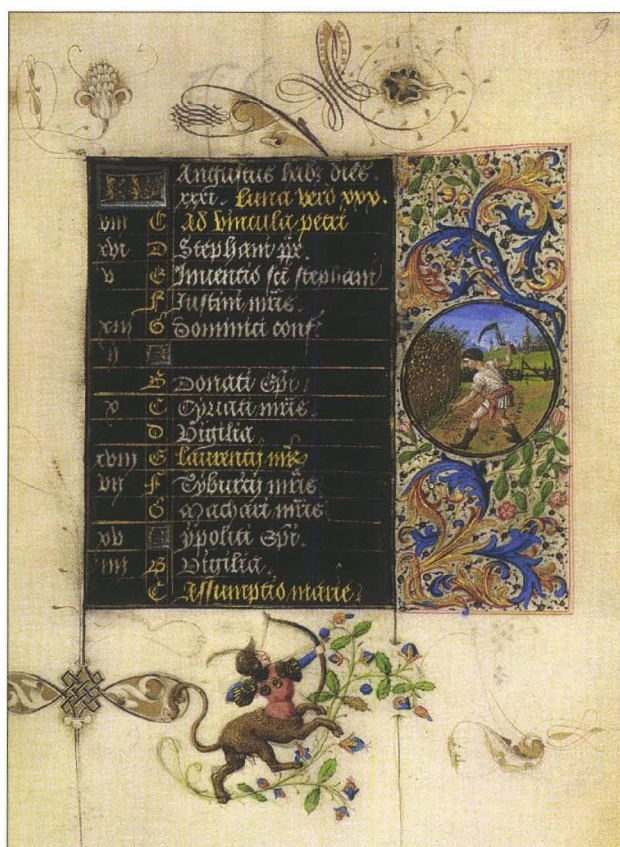 9
KL Augustus habz dies.
xxxi. Luna vero xxx.
viii C Ad vincula petri
xvi D Stephani ppe
v E Inuentio sci stephani
F Iustini mris.
xiii G Dominici conf.
ij A
B Donati Epi.
x C Cyriaci mris.
D Vigilia
xviij E Laurentij mris
vij F Tyburcij mris
G Machari mris
xv A ypoliti Epi.
iiij B Vigilia.
C Assumptio marie.